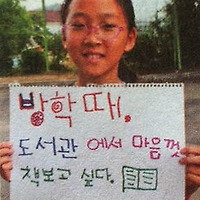 방학 때,
도서관 에서 마음껏
책보고 싶다.